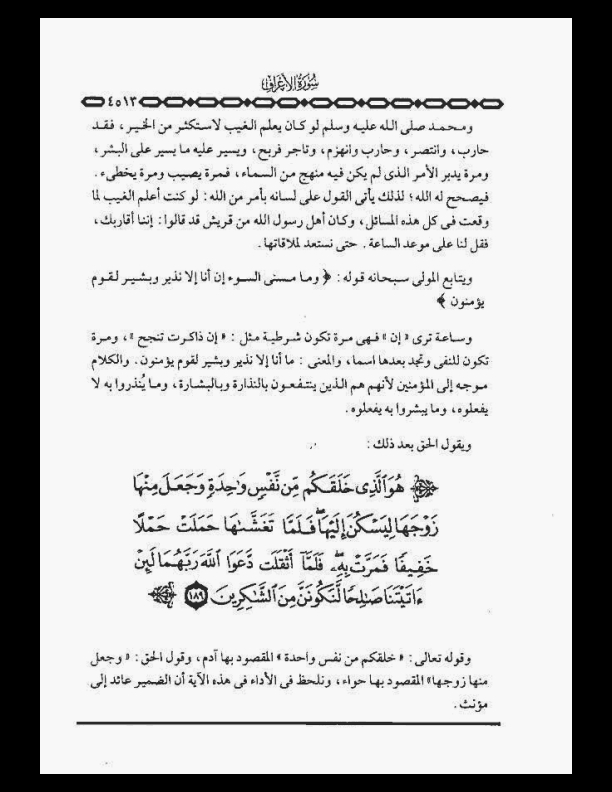 سورة الأعراف
٤٥١٣
ومحمد صلى الله عليه وسلم لو كان يعلم الغيب لاستكثر من الخير ، فقد
حارب، وانتصر ، وحارب وانهزم، وتاجر فربح، ويسير عليه ما يسير على البشر،
ومرة يدبر الأمر الذى لم يكن فيه منهج من السماء، فمرة يصيب ومرة يخطىء .
فيصحح له الله ؛ لذلك يأتى القول على لسانه بأمر من الله : لو كنت أعلم الغيب لما
وقعت فى كل هذه المسائل، وكان أهل رسول الله من قريش قد قالوا : إننا أقاربك،
فقل لنا على موعد الساعة . حتى نستعد لملاقاتها .
ويتابع المولى سبحانه قوله : ﴿ وما مسنى السوء إن أنا إلا نذير وبشير لقوم
يؤمنون ﴾
وساعة ترى « إن » فهى مرة تكون شرطية مثل : « إن ذاكرت تنجح » ، ومرة
تكون للنفى وتجد بعدها اسما، والمعنى : ما أنا إلا نذير وبشير لقوم يؤمنون . والكلام
موجه إلى المؤمنين لأنهم هم الذين ينتفعون بالنذارة وبالبشارة، وما يُنذروا به لا
يفعلوه، وما يبشروا به يفعلوه .
ويقول الحق بعد ذلك :
هُوَ ٱلَّذِى خَلَقَكُم مِّن نَّفْسٍ وَٰحِدَةٍ وَجَعَلَ مِنْهَا
زَوْجَهَا لِيَسْكُنَ إِلَيْهَا ۖ فَلَمَّا تَغَشَّىٰهَا حَمَلَتْ حَمْلًا
خَفِيفًا فَمَرَّتْ بِهِۦ ۖ فَلَمَّآ أَثْقَلَت دَّعَوَا ٱللَّهَ رَبَّهُمَا لَئِنْ
ءَاتَيْتَنَا صَٰلِحًا لَّنَكُونَنَّ مِنَ ٱلشَّٰكِرِينَ ١٨٩
وقوله تعالى : « خلقكم من نفس واحدة » المقصود بها آدم، وقول الحق : « وجعل
منها زوجها» المقصود بها حواء، ونلحظ فى الأداء فى هذه الآية أن الضمير عائد إلى
مؤنث .